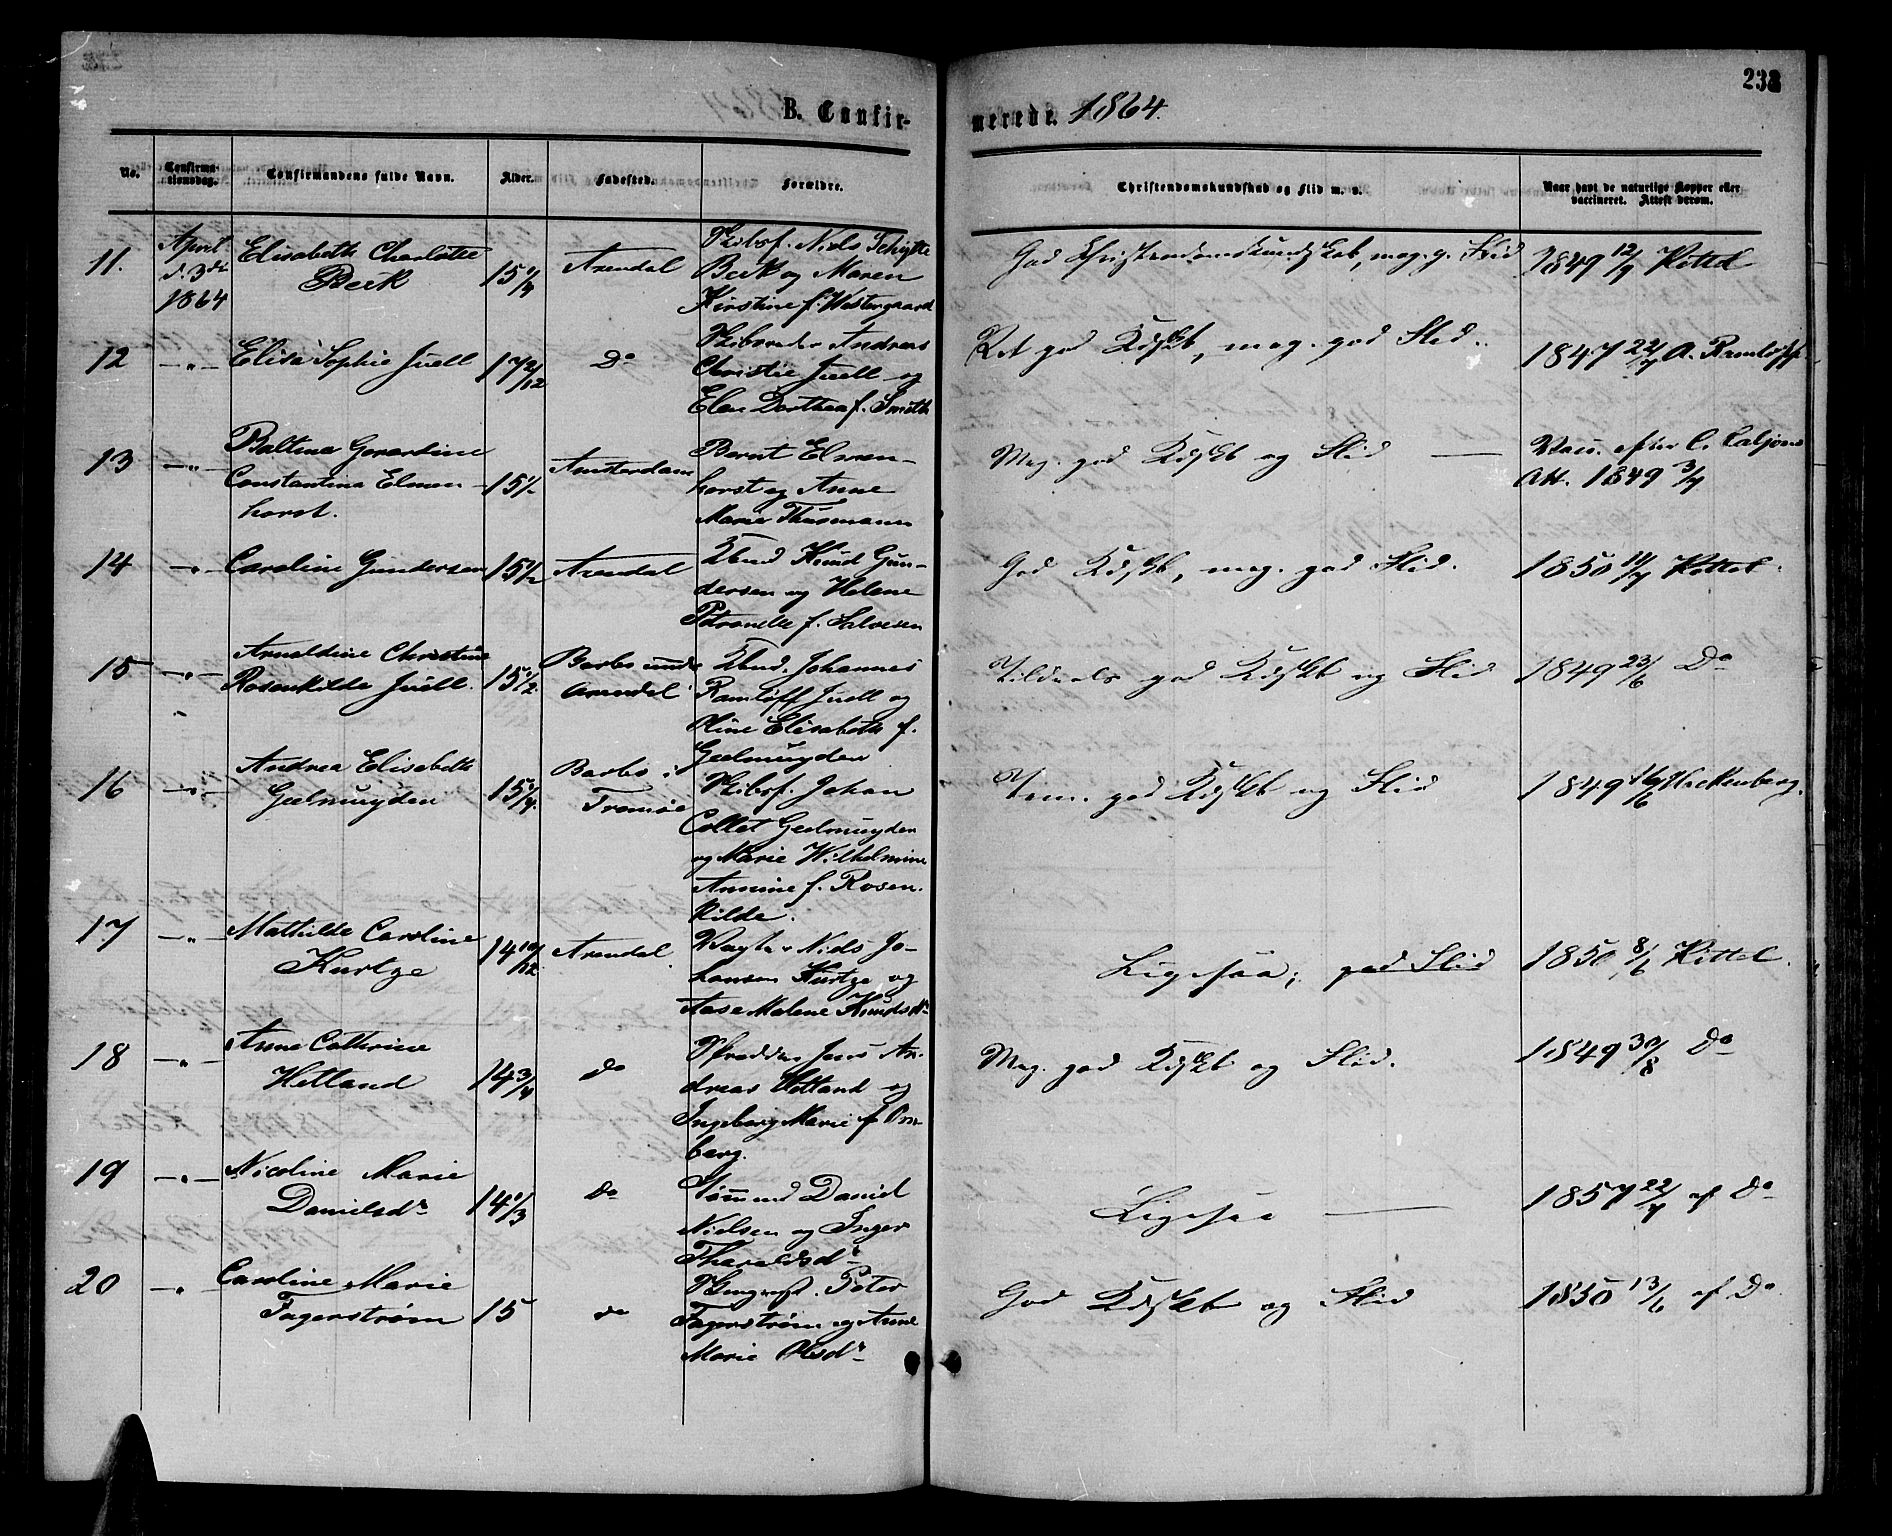 238
B. Confirmerede. 1864.
No. Confirmationsdag. Confirmandens fulde Navn. Alder. Fødested. Forældre. Christendomskundskab og Flid m. v. Naar havt de naturlige Kopper eller vaccineret. Attest derom.
11. April d. 3die 1864 Elisabeth Charlotte Beck 15 1/4 Arendal Skibsf. Niels Schytte Beck og Maren Kirstine f. Westergaard God Christendomskundskab, meg. g. Flid 1849 12/9 Kittel
12 -"- Elisa Sophie Juell 17 2/12 Do Skibsreder Andreas Christie Juell og Elen Dorthea f. Smith Ret god Kdskb, meg. god Flid. 1847 22/7 A. Ramløff
13 -"- Baltina Gerardine Constantina Elmenhorst. 15 1/2 Amsterdam Bernt Elmenhorst og Anne Marie Thusmann Meg. god Kdskb og Flid — Vacc. efter C. Att. 1849 3/7
14 -"- Caroline Gundersen 15 1/2 Arendal Knud Gundersen og Helene Petronelle f. Salvesen God Kdskb, meg. god Flid. 1850 14/7 Kittel.
15 -"- Arnoldine Christine Rosenkilde Juell. 15 1/2 Barbo Arendal Johannes Ramløff Juell og Oline Elisabeth f. Geelmuyden god Kdskb og Flid 1849 23/6 Do
16 -"- Andrea Elisabeth Geelmuyden 15 1/4. Barbo i Tromøe Skibsf. Johan Collet Geelmuyden og Marie Wilhelmine Annine f. Rosenkilde. god Kdskb og Flid 1849 Hackenberg.
17 -"- Mathilde Caroline Kurtze 14 10/12 Arendal Vægter Niels Johansen Kurtze og Aase Malene Knudsdr Ligesaa; god Flid 1850 8/6 Kittel.
18 -"- Anne Cathrine Hetland 14 3/4 do Jens Andreas Hetland og Ingeborg Marie f. Omberg. Meg. god Kdskb og Flid. 1849 30/8 Do
19 -"- Nicoline Marie Danielsdr 14 1/3 do Tømmd Daniel Nielsen og Inger Tharaldsdr Ligesaa — 1857 22/7 af Do
20 -"- Caroline Marie Fagerstrøm 15 do Peter Fagerstrøm og Anne Marie Olsdr God Kdskb og Flid 1850 13/6 af Do